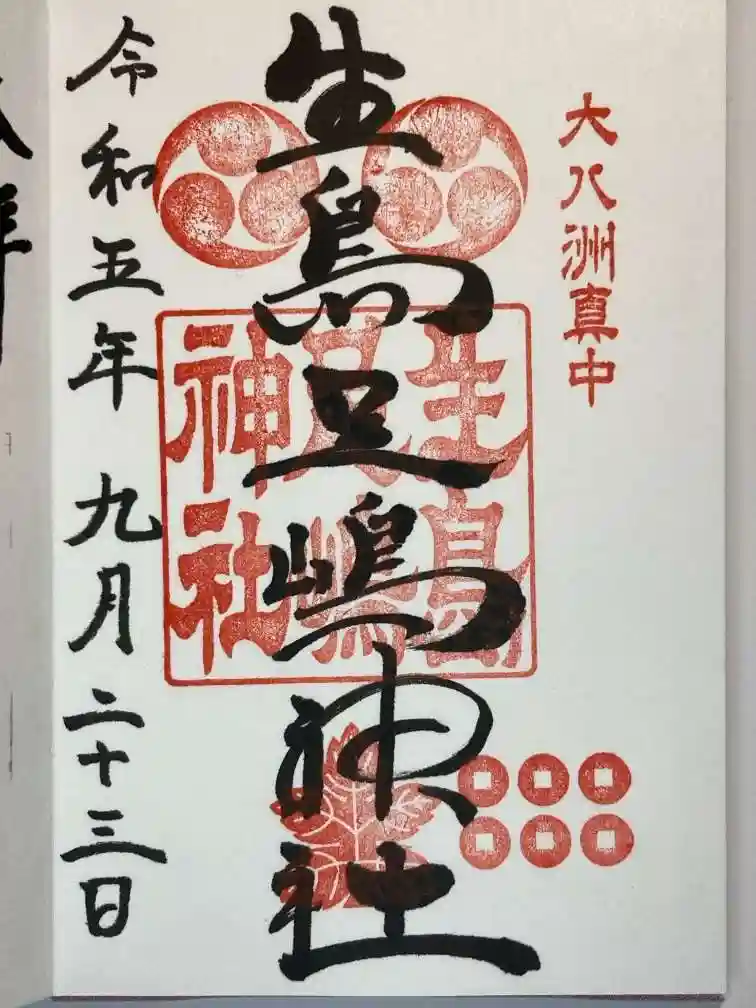 大八洲真中
生島足嶋神社
生島
足嶋
神社
令和五年九月二十三日